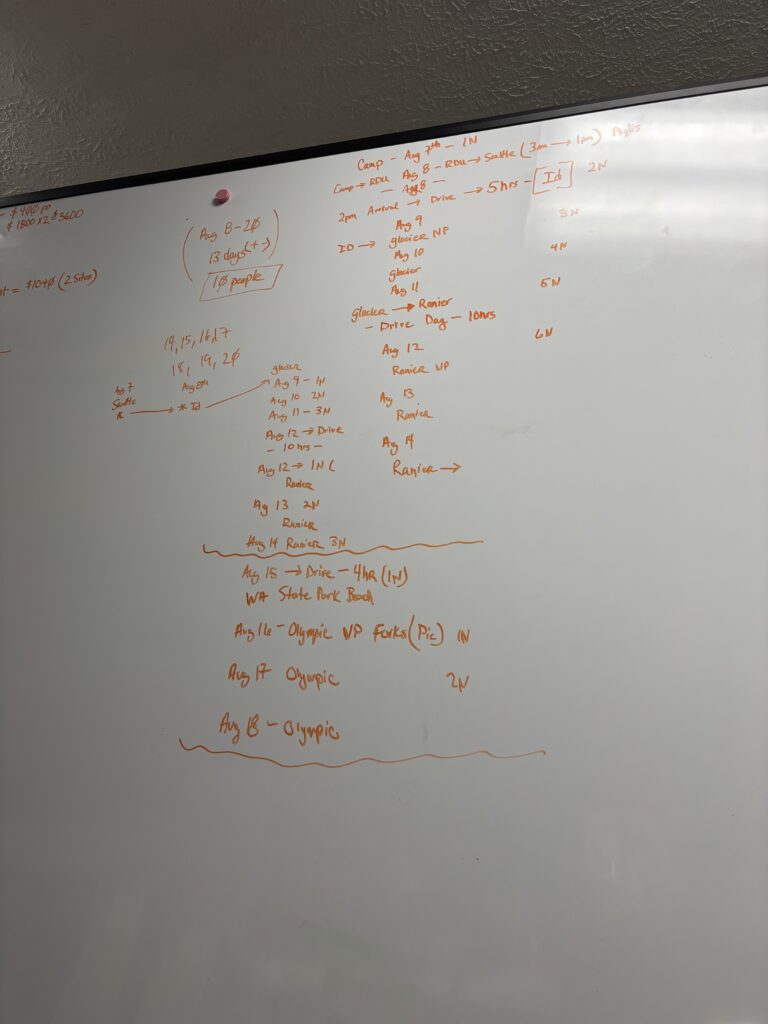 - $400 pp
$1800 x 2 = $3600
t = $1040 (2 Sites)
( Aug 8 - 20
13 days (+-) )
10 people
14, 15, 16, 17
18, 19, 20
Aug 7
Seattle
* → * Id
glacier
Aug 9 - 1N
Aug 10 2N
Aug 11 - 3N
Aug 12 → Drive
- 10 hrs -
Aug 12 → 1N (
Ranier
Ag 13 2N
Ranier
Aug 14 Ranier 3N
Camp - Aug 7th - 1N
Camp → RDU Aug 8 - RDU → Seattle (3am → 1pm)
- Aug 8 -
2pm Arrival → Drive → 5 hrs - [Id] 2N
Aug 9 3N
ID → glacier NP
Aug 10 4N
glacier
Aug 11 5N
glacier → Ranier
- Drive Day - 10hrs
Aug 12 6N
Ranier NP
Ag 13
Ranier
Ag 14
Ranier →
Ag 15 → Drive - 4hr (1N)
WA State Park Beach
Aug 16 - Olympic NP Forks (Pic) 1N
Aug 17 Olympic 2N
Aug 18 - Olympic